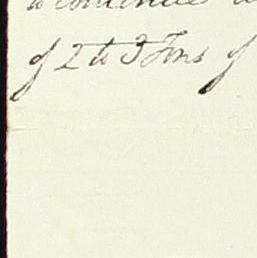 to continue
of 2 to 3 Tons of